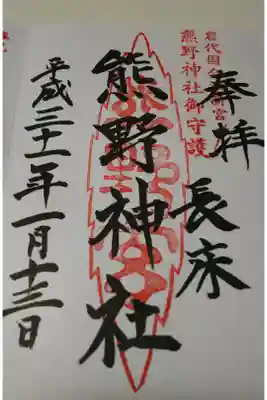 奉拝
長床
熊野神社御守護
熊野神社
平成三十一年一月十三日